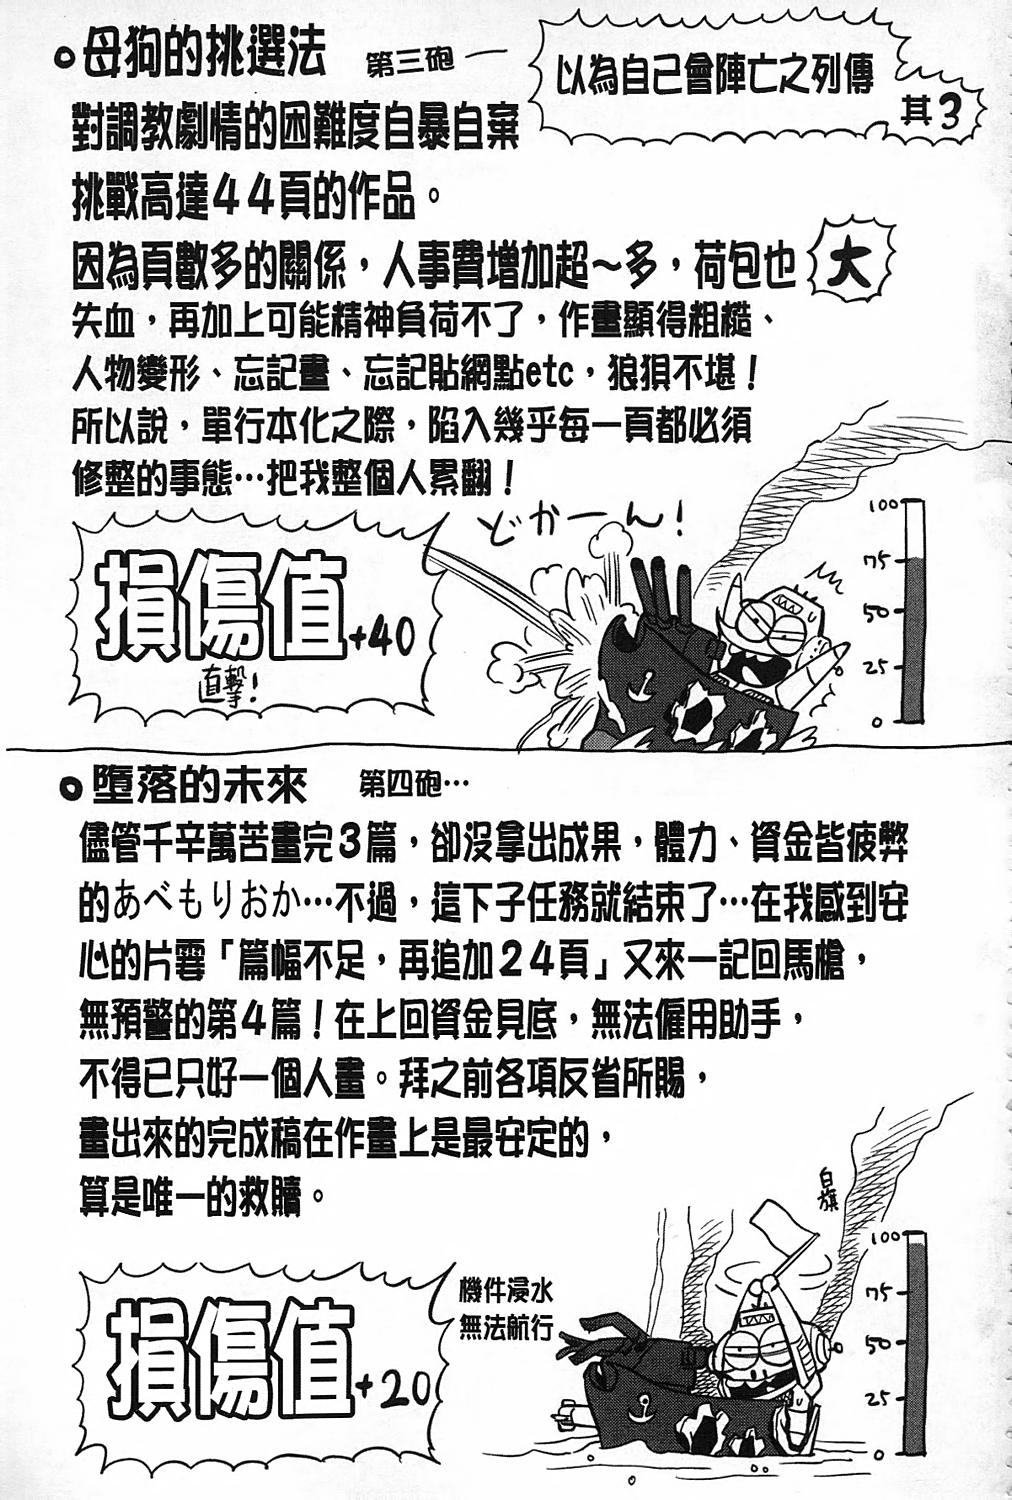 以為自己會陣亡之列傳
其3
母狗的挑選法 第三砲
對調教劇情的困難度自暴自棄
挑戰高達44頁的作品。
因為頁數多的關係，人事費增加超～多，荷包也大
失血，再加上可能精神負荷不了，作畫顯得粗糙、
人物變形、忘記畫、忘記貼網點etc，狼狽不堪！
所以說，單行本化之際，陷入幾乎每一頁都必須
修整的事態…把我整個人累翻！
どかーん！
損傷值+40
直擊！
100
75
50
25
0
墮落的未來 第四砲…
儘管千辛萬苦畫完3篇，卻沒拿出成果，體力、資金皆疲弊
的あべもりおか…不過，這下子任務就結束了…在我感到安
心的片霎「篇幅不足，再追加24頁」又來一記回馬槍，
無預警的第4篇！在上回資金見底，無法僱用助手，
不得已只好一個人畫。拜之前各項反省所賜，
畫出來的完成稿在作畫上是最安定的，
算是唯一的救贖。
白旗
機件浸水
無法航行
損傷值+20
100
75
50
25
0